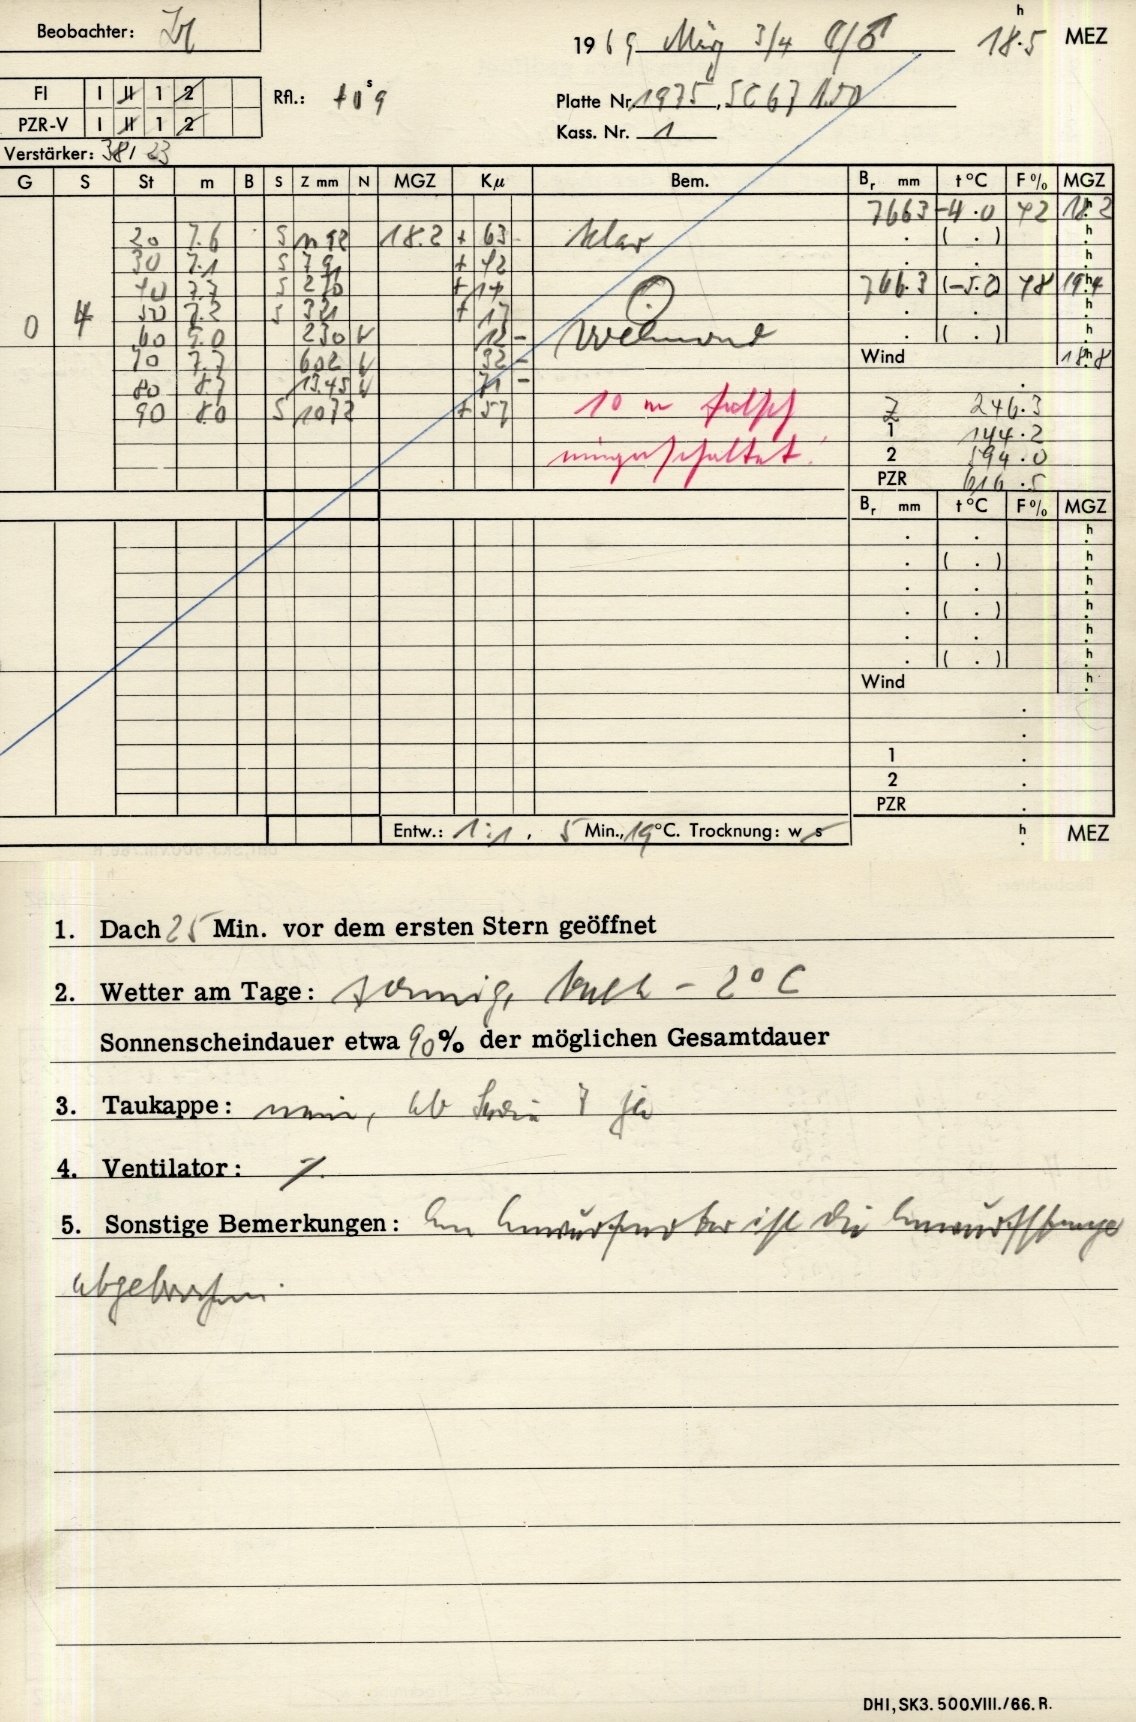 Beobachter:
h
1969 März 3/4 18.5 MEZ
FI I II 1 2
Rfl.: +0 s 9
PZR-V I II 1 2
Platte Nr. 1975,
Kass. Nr. 1
Verstärker: 38/23
G S St m B S Z mm N MGZ Kμ Bem. Br mm t°C F% MGZ
7663 -4.0 72 18h2
20 7.6 S 18.2 + 63 klar . ( . ) h
30 7.1 S 79 + 42 . . h
40 7.7 S 270 + 14 766.3 (-5.2) 78 19h4
0 4 50 7.2 S 321 + 17 . . h
60 9.0 230 N 12 - Vollmond . ( . ) h
70 7.7 602 N 92 - Wind 18h8
80 8.7 13.45 N 71 - .
90 8.0 S 1072 + 57 10 m falsch Z 246.3
1 144.2
eingeschaltet! 2 594.0
PZR 616.5
Br mm t°C F% MGZ
. . h
. ( . ) h
. . h
. ( . ) h
. . h
. ( . ) h
Wind h
.
.
1 .
2 .
PZR .
Entw.: 1:1, 5 Min., 19°C. Trocknung: w s h . MEZ
1. Dach 25 Min. vor dem ersten Stern geöffnet
2. Wetter am Tage: sonnig, kalt -2°C
Sonnenscheindauer etwa 90% der möglichen Gesamtdauer
3. Taukappe: nein, ab Serie 7 ja
4. Ventilator: ⁒
5. Sonstige Bemerkungen: ist die
abgebrochen.
DHI, SK3. 500.VIII./66. R.